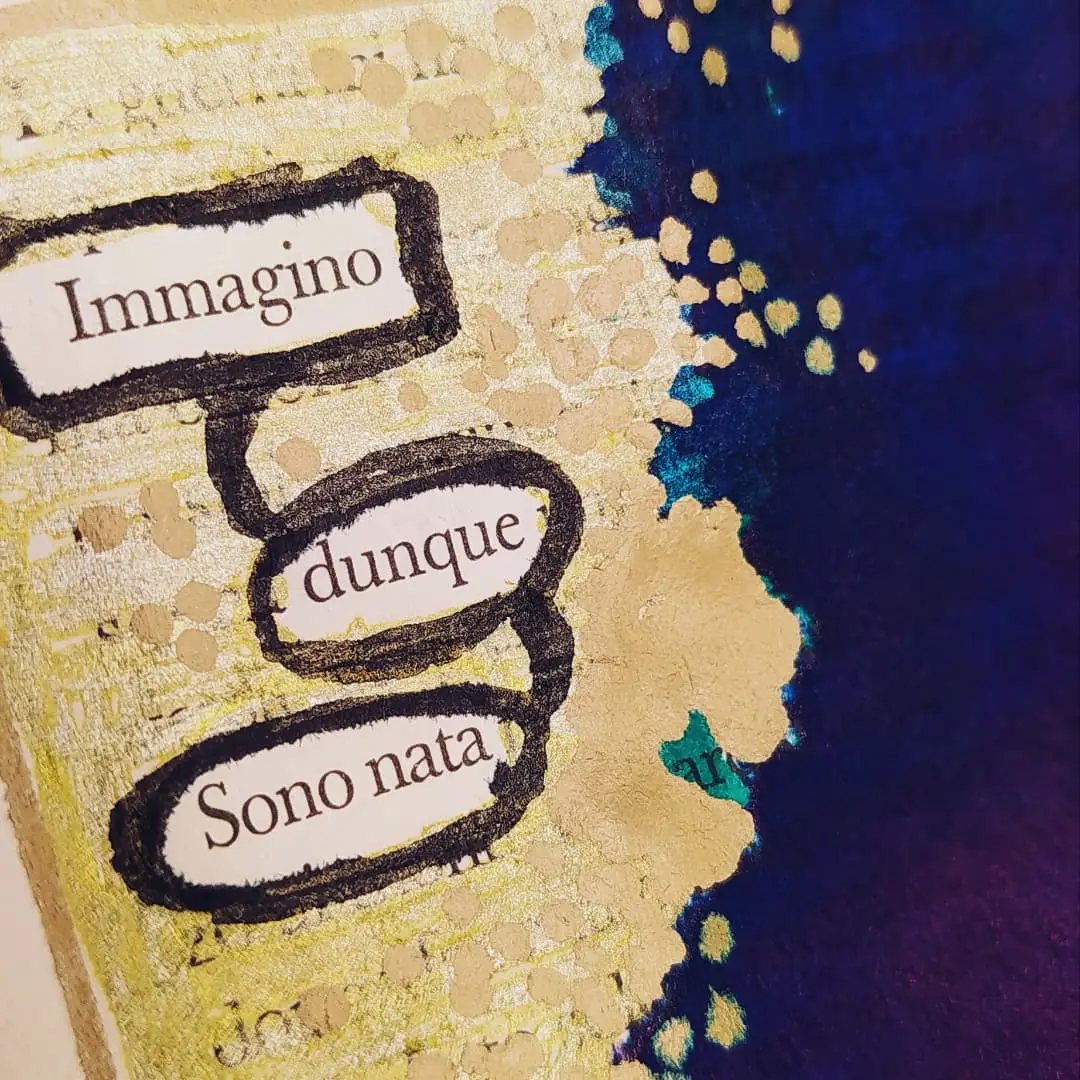 Immagino
dunque
Sono nata
ar